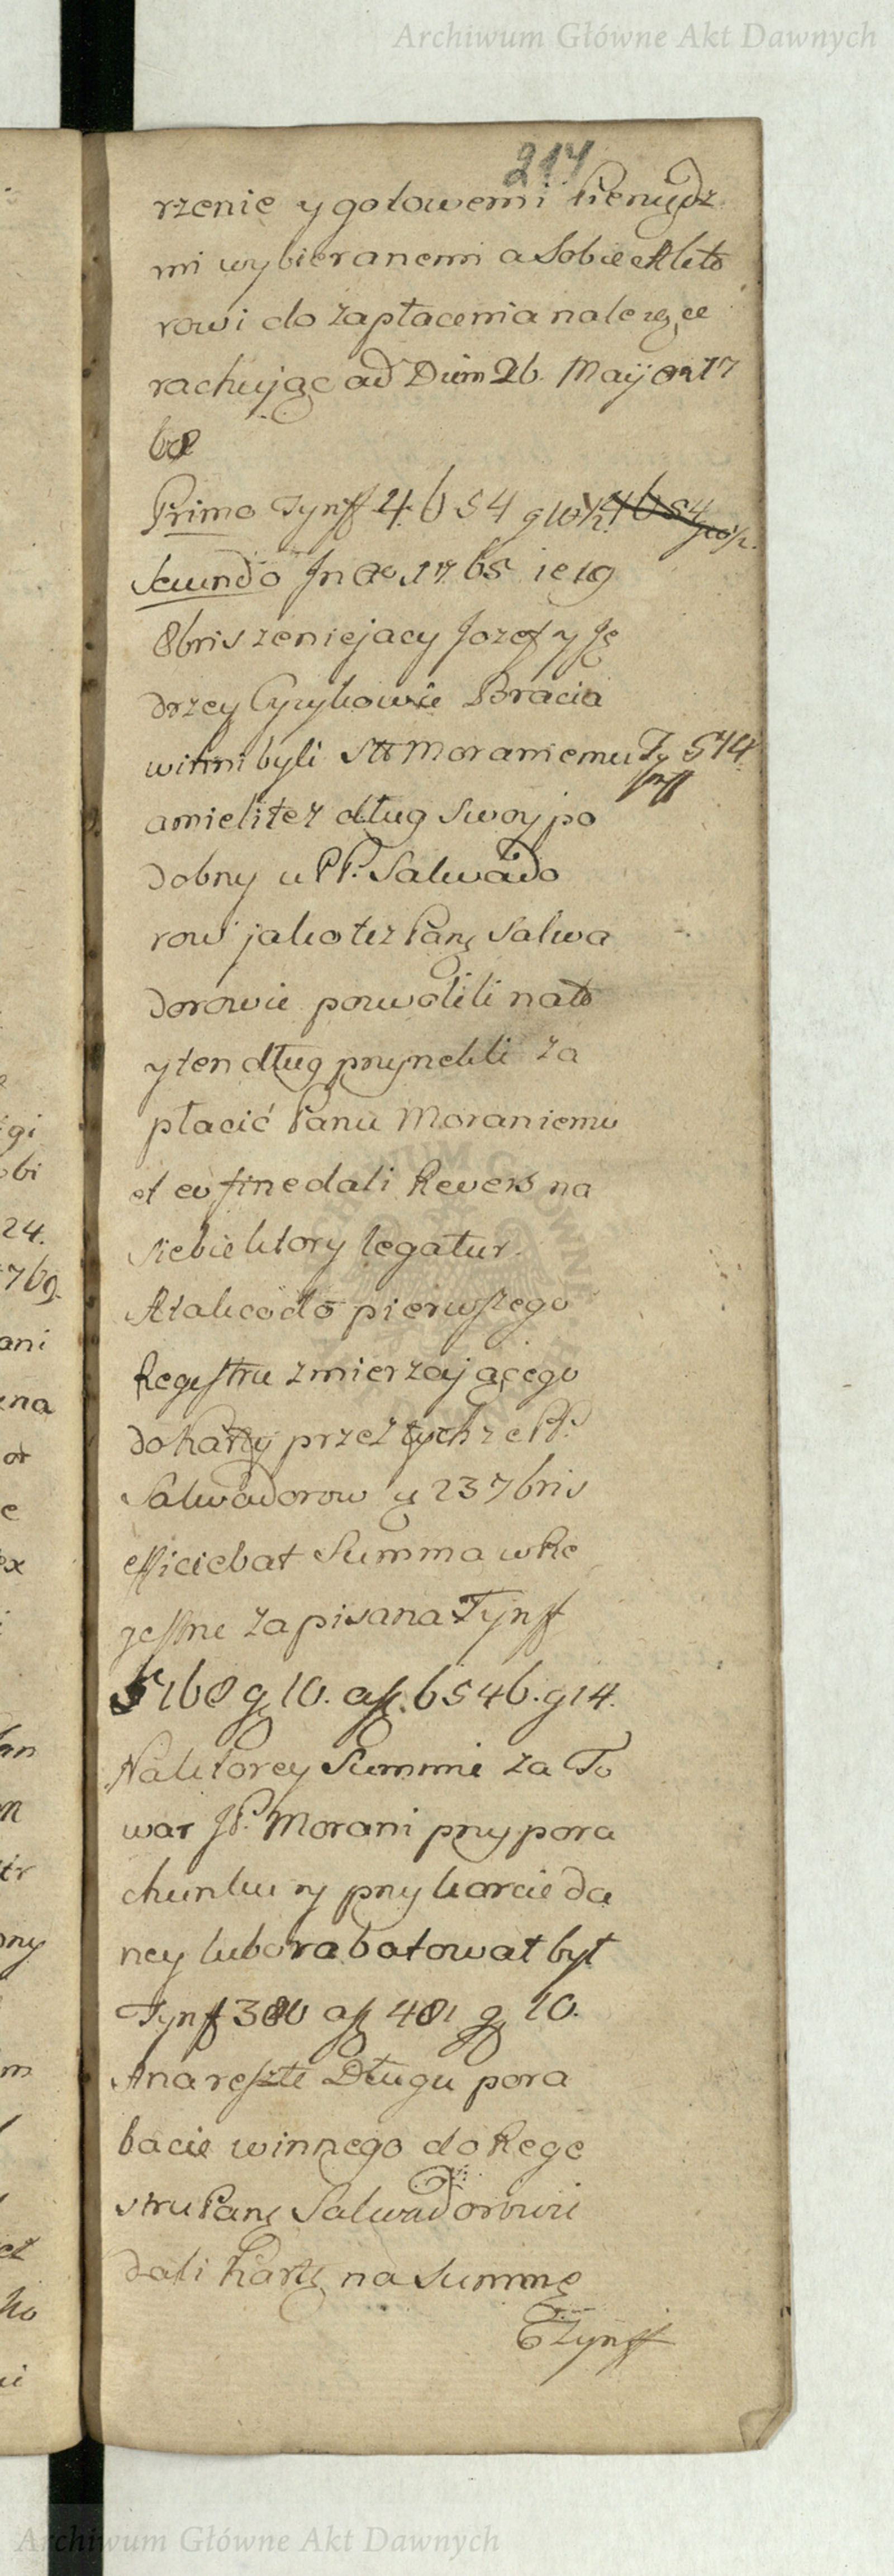 Archiwum Główne Akt Dawnych
214
rzenie y gotowemi Pieniędz
mi wybieranemi a Sobie Akto
rowi do zapłacenia należące
rachując ad Diem 26. Maij an 17
68
Primo Tynff 4654 g 10½
Secundo Jn Ao 1765 ie 19
8bris zeniejacy Jozef y Ję
drzey Cyrykowie Bracia
winni byli Stt Moraniemu Tynff 514
a mieli też dług swoy po
dobny u PP. Salwado
row jako też Panę Salwa
dorowie pozwolili na to
y ten dług przyrzekli za
płacić Panu Moraniemu
et eo fine dali Rewers na
siebie ktory legatur.
A iako do pierwszego
Regestru zmierzającego
do Karty przez tychże PP.
Salwadorow 23 7bris
efficiebat Summa w Re
gestrze zapisana Tynff
5168 g 10. aff. 6546. g 14.
Na ktorey Summie za To
war JP. Morani przy pora
chunku y przy karcie da
ney lubo rabatował był
Tynff 380 aff 481 g 10.
A na reszte Długu po ra
bacie winnego do Rege
stru Panę Salwadorowie
dali Kartę na Summę
Tynff
Archiwum Główne Akt Dawnych